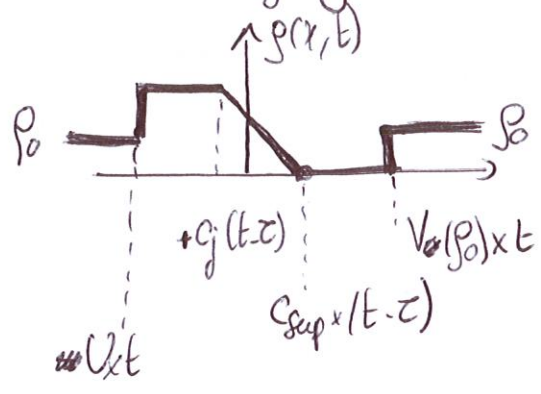 ρ(x,t)
ρ₀ ρ₀
+Cj(t-τ) Ve(ρ₀)×t
Csup×(t-τ)
U×t